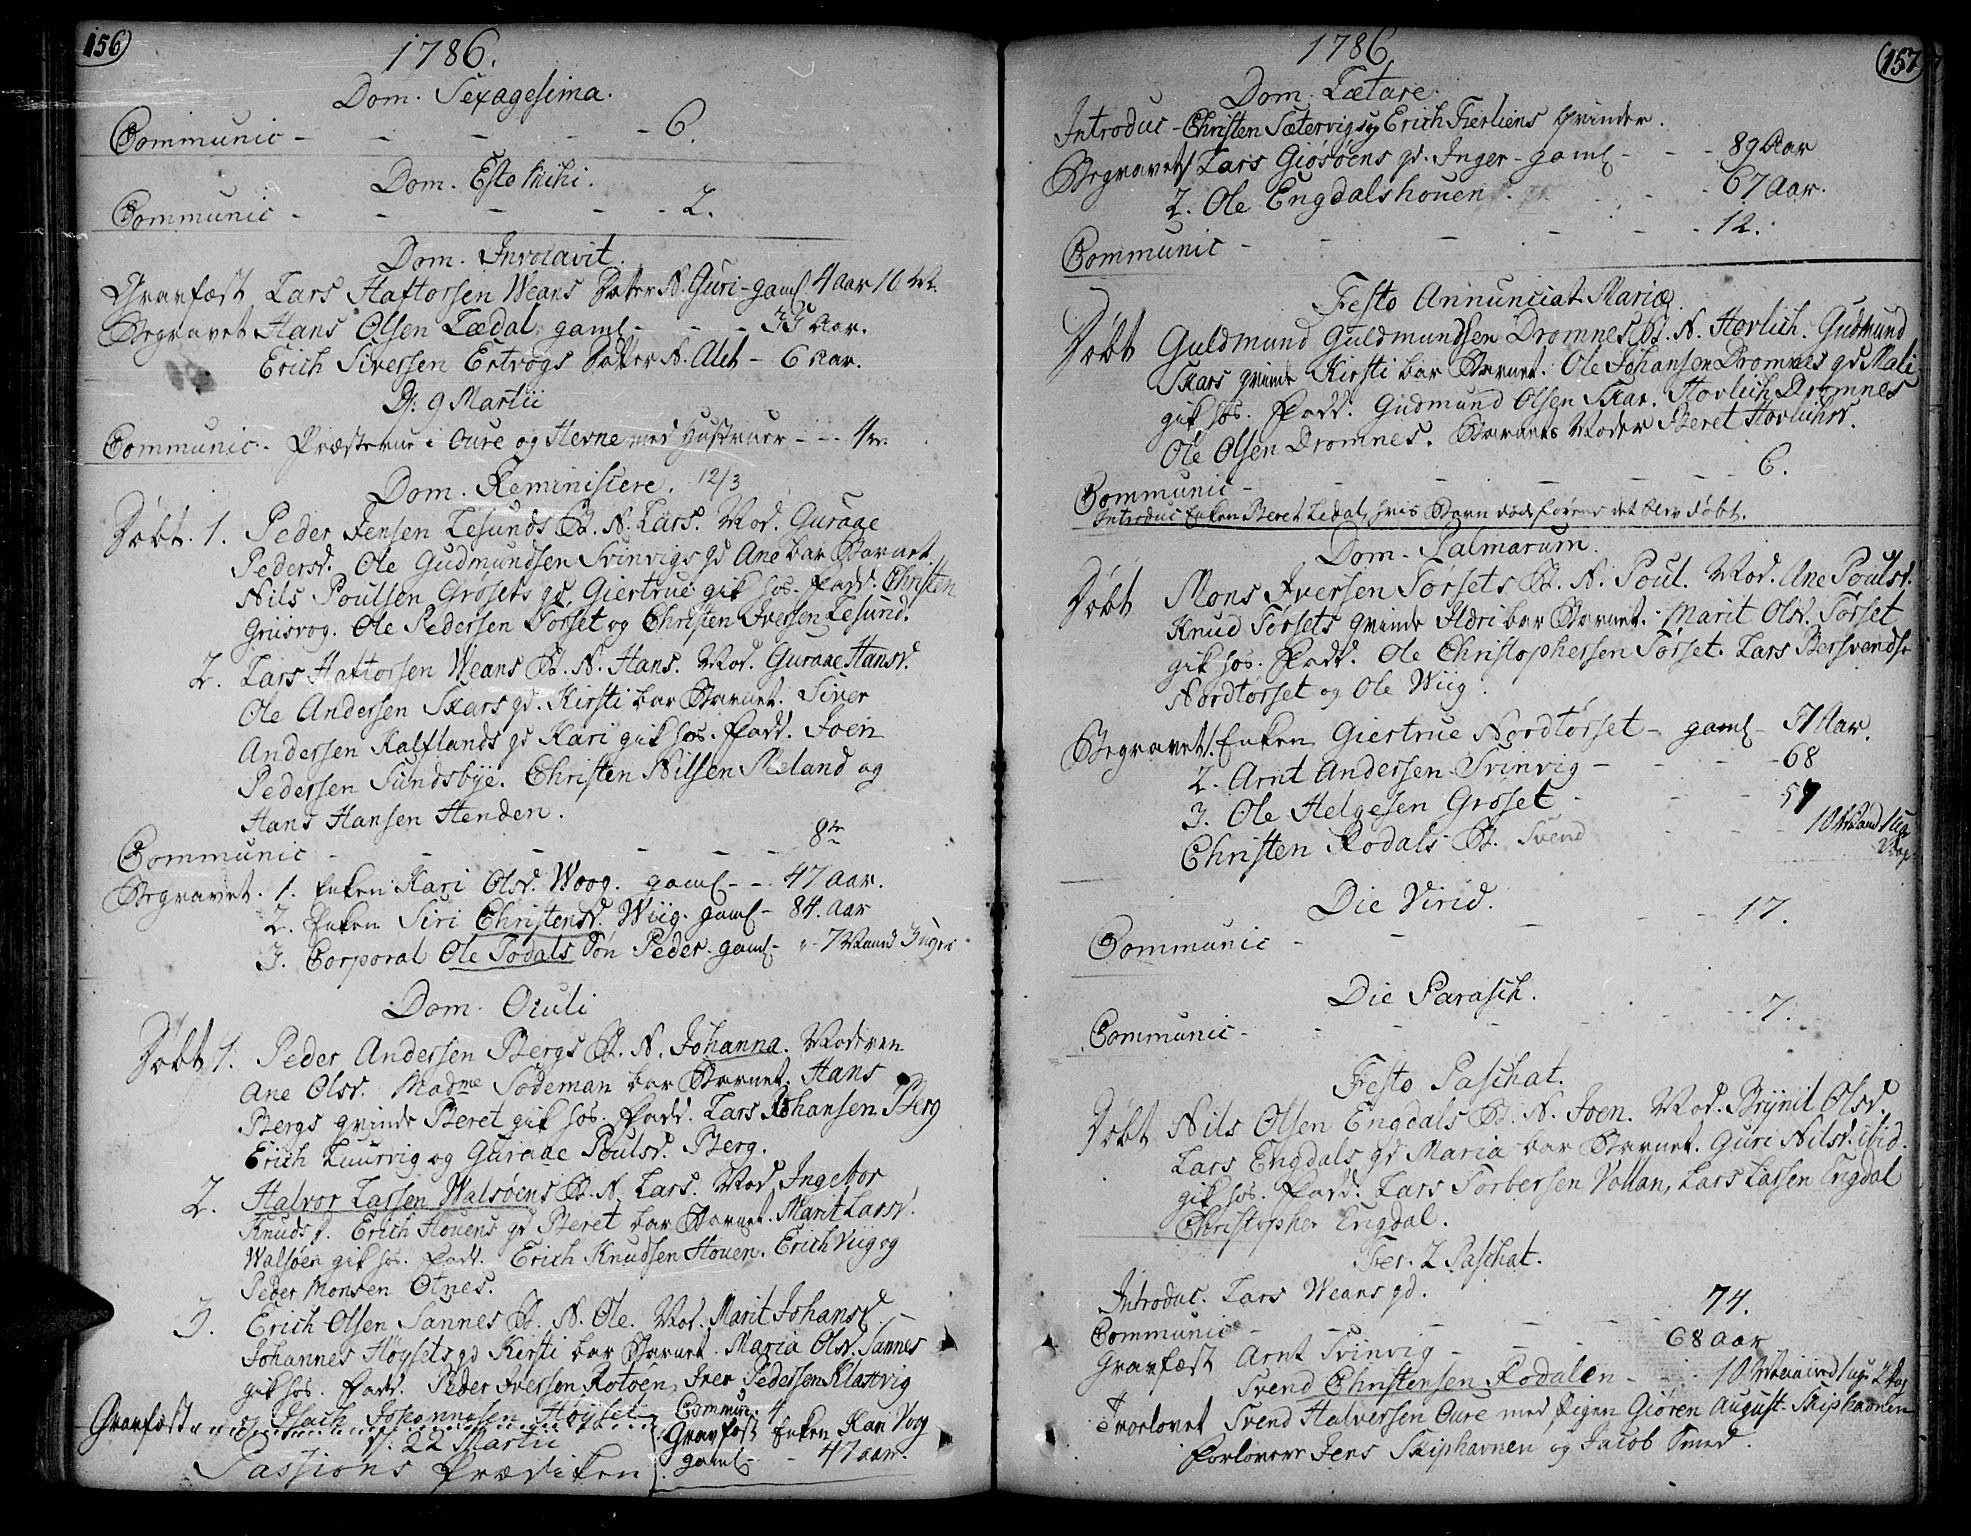 156
1786.
Dom. Sexagesima.
Communic - - - - - 6.
Dom. Esto Mihi.
Communic - - - - - 2.
Dom. Invocavit.
Gravfæst Lars Haftorsen Weans Datter N. Guri - gaml 4 Aar 10 M.
Begravet Hans Olsen Lædal gaml - - - 33 Aar.
Erich Siversen Ertvogs Datter N. Alet - 6 Aar.
D: 9 Martii
Communic - Præsterne i Oure og Hevne med Hustruer - - 4re
Dom. Reminiscere. 12/3
Døbt. 1. Peder Jensen Lesunds B. N. Lars. Mod. Guraae
Pedersd. Ole Gudmundsen Svinvigs qd Ane bar Barnet
Nils Poulsen Grøsets qd Giertrue gik hos. Fadd. Christen
Griisvog. Ole Pedersen Torset og Christen Iversen Lesund.
2. Lars Haftorsen Weans B. N. Hans. Mod. Guraae Hansd.
Ole Andersen Skars qd. Kirsti bar Barnet. Siver
Andersen Kalflands qd Kari gik hos. Fadd. Joen
Pedersen Sundsbye. Christen Nilsen Meland og
Hans Hansen Henden.
Communic - - - - - 8te
Begravet. 1. Enken Kari Olsd. Woog. gaml - - 47 Aar.
2. Enken Siri Christensd. Wiig. gaml - 84. Aar
3. Corporal Ole Todals Søn Peder - gaml - 7 Maaned 3 uger
Dom. Oculi
Døbt 1. Peder Andersen Bergs B. N. Johanna. Moderen
Ane Olsd. Madme Sodeman bar Barnet. Hans
Bergs qvinde Beret gik hos. Fadd. Lars Johansen Berg
Erich Luurvig og Guraae Poulsd. Berg.
2. Halvor Larsen Walsøens B. N. Lars. Mod. Ingebor
Knudsd. Erich Houens qd Beret bar Barnet. Marit Larsd.
Walsøen gik hos. Fadd. Erich Knudsen Houen. Erich Viig og
Peder Monsen Otnes.
3. Erich Olsen Sannes B. N. Ole. Mod. Marit Johansd.
Johannes Høysets qd Kirsti bar Barnet. Maria Olsd. Sannes
gik hos. Fadd. Peder Iversen Rotøen, Iver Pedersen Klaxvig
og Isach Johannesen Høyset
Gravfæst
D: 22 Martii
Passions Prædiken
Commun. 4
Gravfæst Enken Kari Voog
gaml - - 47 Aar.
157
1786
Dom. Lætare.
Introduc - Christen Sætervigs og Erich Fierliens Qvinder.
Begravet 1 Lars Giøsøens qd. Inger - gaml - - - 89 Aar
2. Ole Engdalshouen - - 67 Aar.
Communic - - - - - 12.
Festo Annunciat Mariæ
Døbt Guldmund Guldmundsen Dromnes B. N. Hovlich. Gudmund
Skars qvinde Kirsti bar Barnet. Ole Johansen Dromnes qd Mali
gik hos. Fadd. Gudmund Olsen Skar. Hovlich Dromnes
Ole Olsen Dromnes. Barnets Moder Beret Hovlichsd.
Communic - - - - - 6.
Introduc Enken Beret Ledal, hvis Barn døde førend det blev døbt.
Dom. Palmarum.
Døbt Mons Iversen Torsets B. N. Poul. Mod. Ane Poulsd.
Knud Torsets qvinde Ildri bar Barnet. Marit Olsd. Torset
gik hos. Fadd. Ole Christophersen Torset. Lars Bersvends.
Nordtorset og Ole Wiig.
Begravet 1. Enken Giertrue Nordtorset - gaml - 71 Aar.
2. Arnt Andersen Svinvig - - - - 68
3. Ole Helgesen Grøset - - - 57
Christen Rodals B. Svend - - - 10 Maaned 1 uge
Die Virid.
Communic - - - - - 17.
Die Parasch.
Communic - - - - - 7.
Festo Paschat.
Døbt Nils Olsen Engdals B. N. Joen. Mod. Brynil Olsd.
Lars Engdals qd Maria bar Barnet. Guri Nilsd. ibid.
gik hos. Fadd. Lars Torbersen Vollan, Lars Larsen Engdal
Christopher Engdal.
Fer. 2 Paschat.
Introduc. Lars Weans qd.
Communic - - - - - 74.
Gravfæst Arnt Svinvig - - - 68 Aar
Svend Christensen Rodalen - - 10 Maaned 1 uge 2 Dag
Trolovet Svend Halversen Oure med Pigen Giøren August. Skiphavnen
Forlovere Jens Skiphavnen og Jacob Smed.